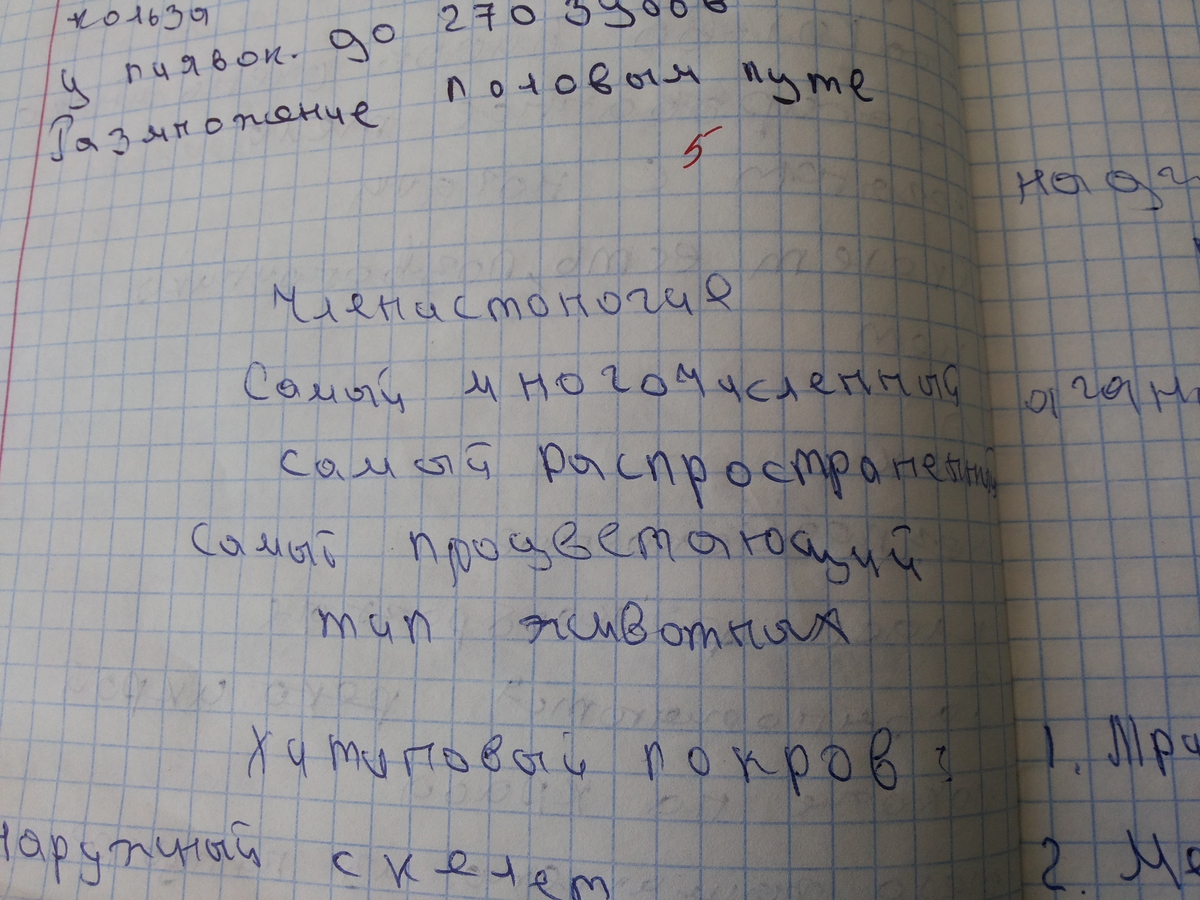 кольза
у пиявок. до 270 
Размножение половым путе
5
Членистоногие
Самый многочисленный
самый распространенный
Самый процветающий
тип животных
Хитиновый покров :
наружный скелет
1. Тра
2. Ме